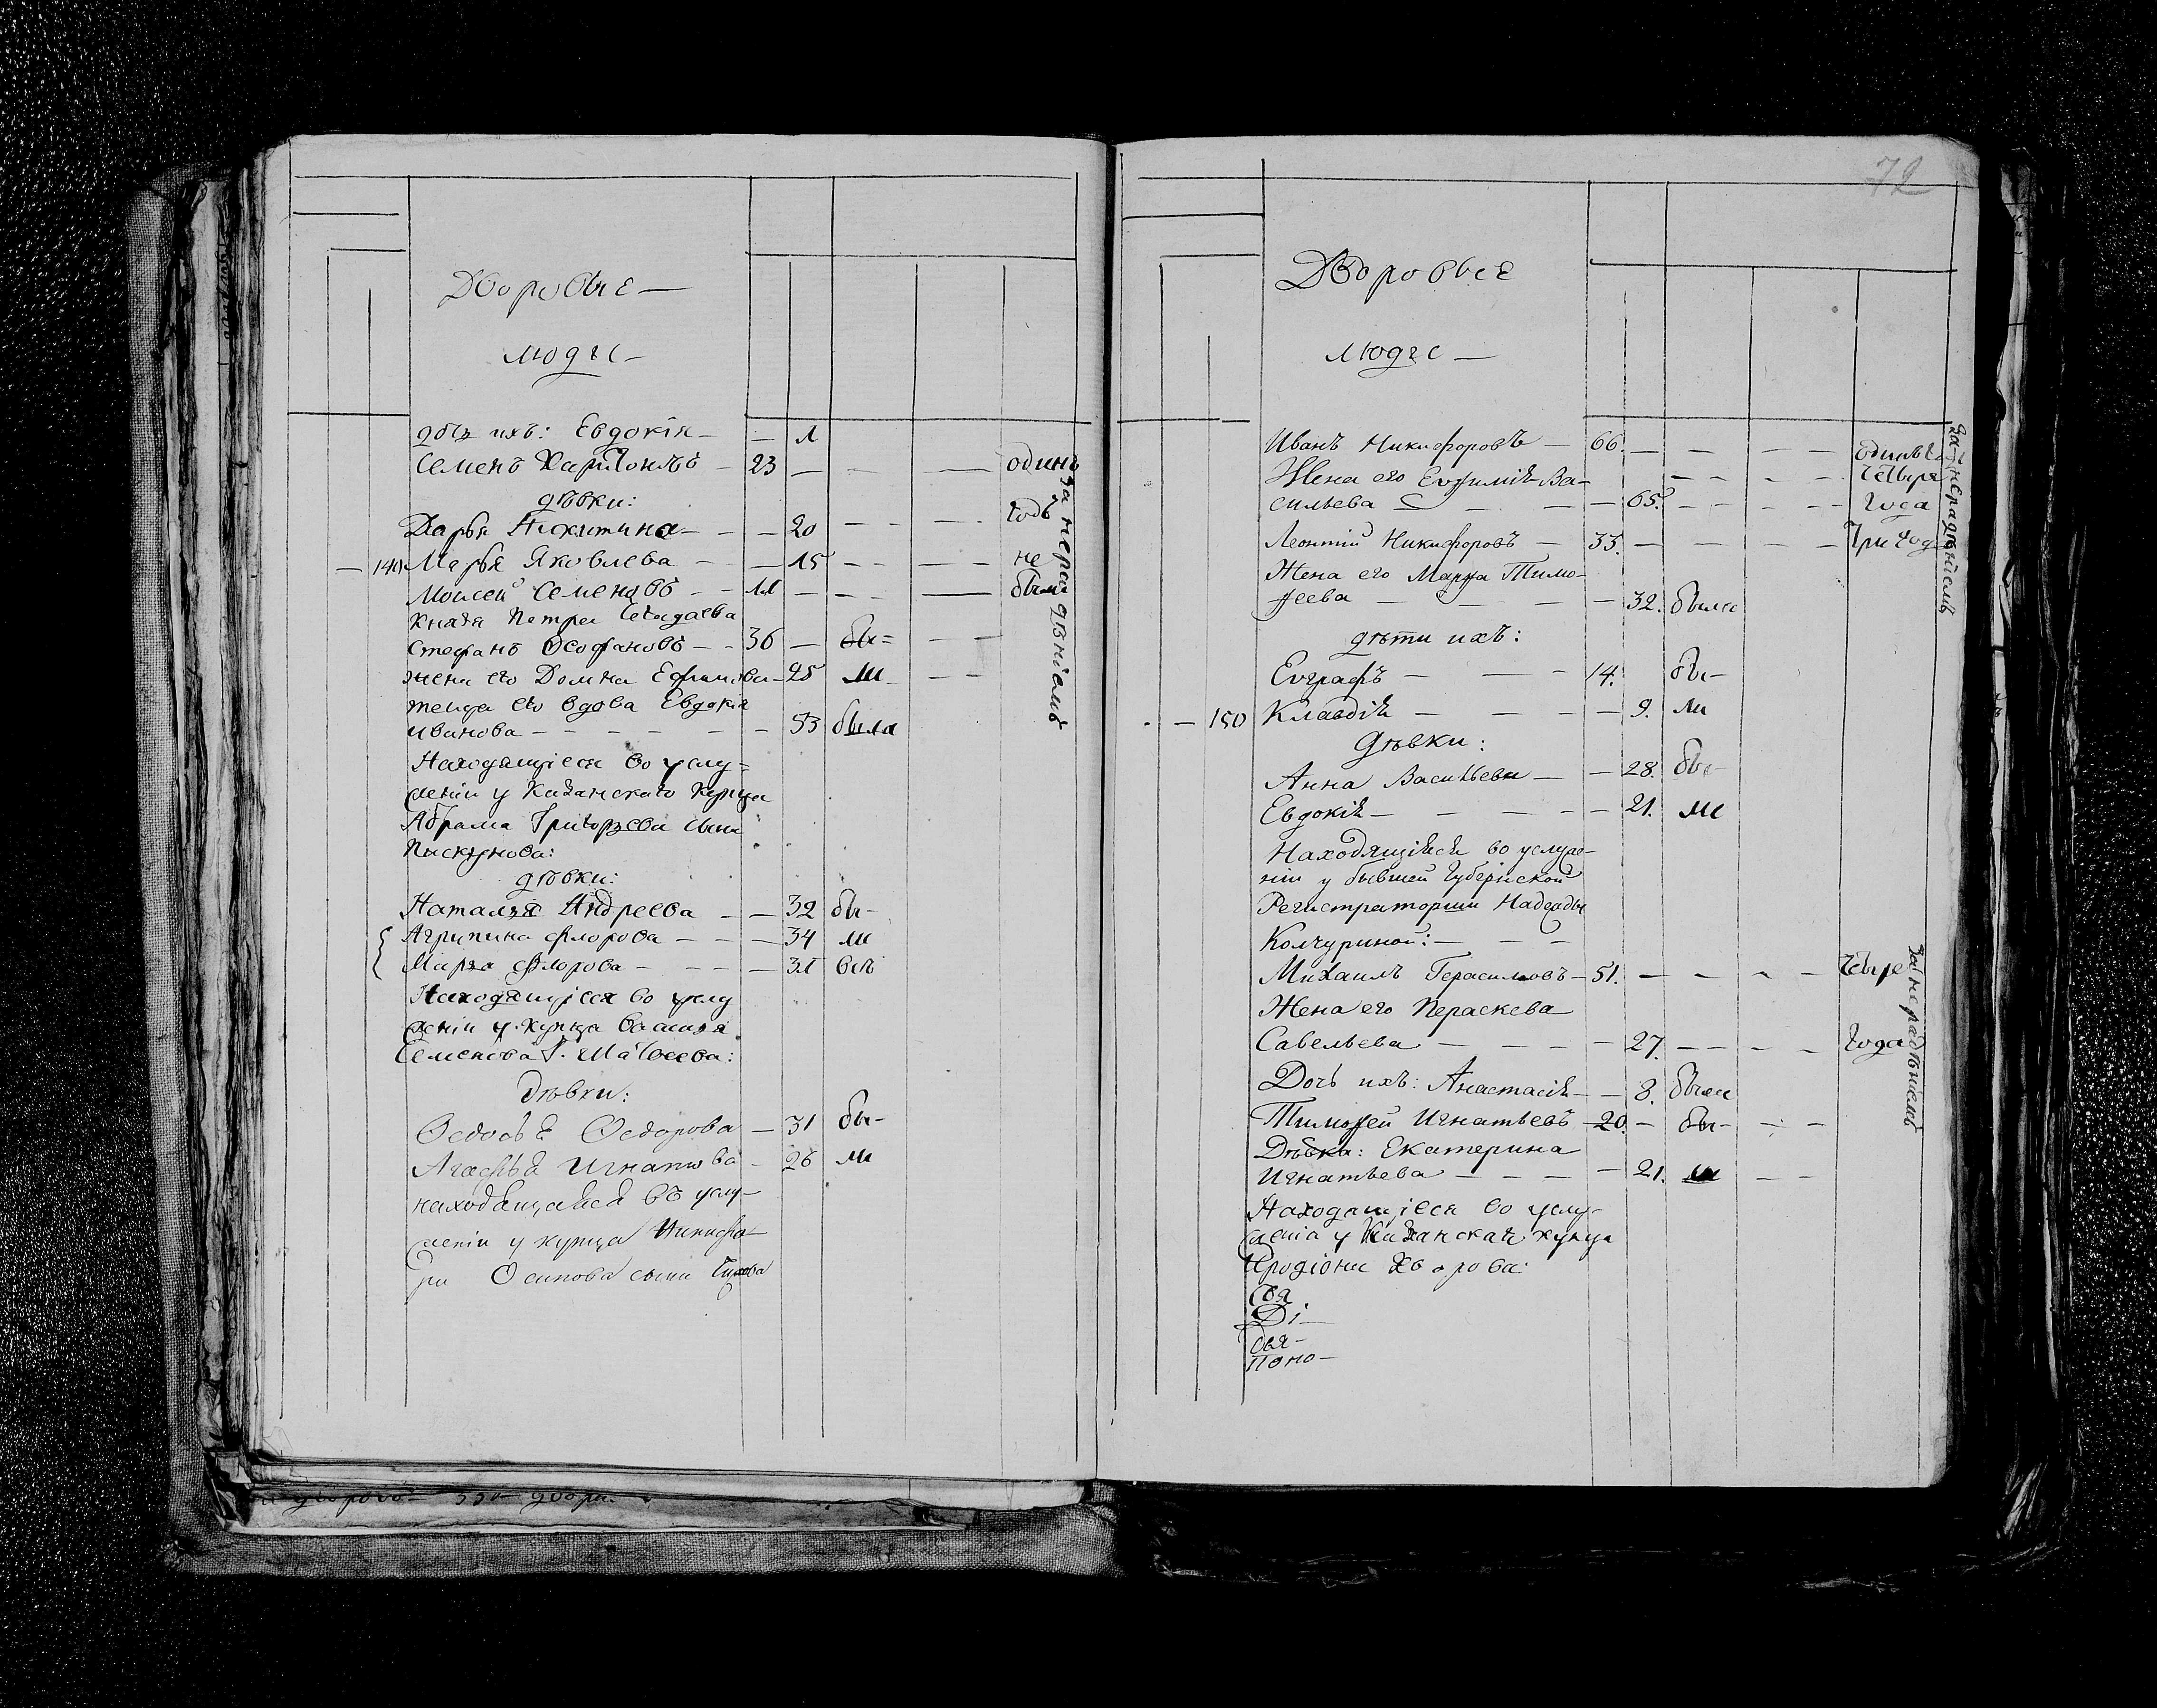 Дворовые —
люди —
дочь ихъ: Евдокія — — 1
Семенъ Харитоновъ — 23 — — — одинъ
дѣвки: годъ
Дарья Никитина — — — 20 — — —
— 140 Марья Яковлева — — — 15 — — — не
Моисей Семеновъ — — 11 — — — были
за нерадѣніемъ
Князя Петра
Стефанъ Ѳеофановъ — — 36 — бы= — —
жена его Домна Ефимова — 25 ли — —
теща его вдова Евдокія
Иванова — — — — — — 53 была
Находящіеся во услу=
женіи у Казанскаго Купца
Абрама Григорьева сына
Пискунова:
дѣвки:
Наталья Андреева — — 32 бы-
Агрипина Флорова — — — 34 ли
Марѳа Флорова — — — — 31 всѣ
Находящіеся во услу
женіи у купца Василья
Семенова Матвеева:
Дѣвки:
Ѳедосья Ѳедорова — 31 бы-
Агафья Игнатова — 26 ли
находящаяся въ услу-
женіи у купца Никифо-
ра Осипова сына
72
Дворовые
люди —
Иванъ Никифоровъ — 66. — — — —
Жена его Евфимія Ва- — — — — четыре
сильева — — 65. — — — — года
Леонтій Никифоровъ — 33. — — — — три года
за нерадѣніемъ
Жена его Марѳа Тимо-
феева — — — — 32. были
дѣти ихъ:
Евграфъ — — — 14. бы-
— 150 Клавдія — — — — 9. ли
Дѣвки:
Анна Васильева — — 28. бы-
Евдокія — — — — — 21. ли
Находящіяся во услуже-
ніи у бывшей Губернской
Регистраторши Надежды
Колчуриной: — — —
Михаилъ Герасимовъ — 51. — — — — четыре
Жена его Параскева
Савельева — — — — 27. — — — — года
за нерадѣніемъ
Дочь ихъ: Анастасія — — 8. были
Тимофей Игнатьевъ — 20. — бы- — —
Дѣвка: Екатерина
Игнатьева — — — — 21. ли — —
Находящіеся во услу-
женіи у Казанскаго купца
Иродіона Хворова:
Свя
Ді —
Дья-
Поно-